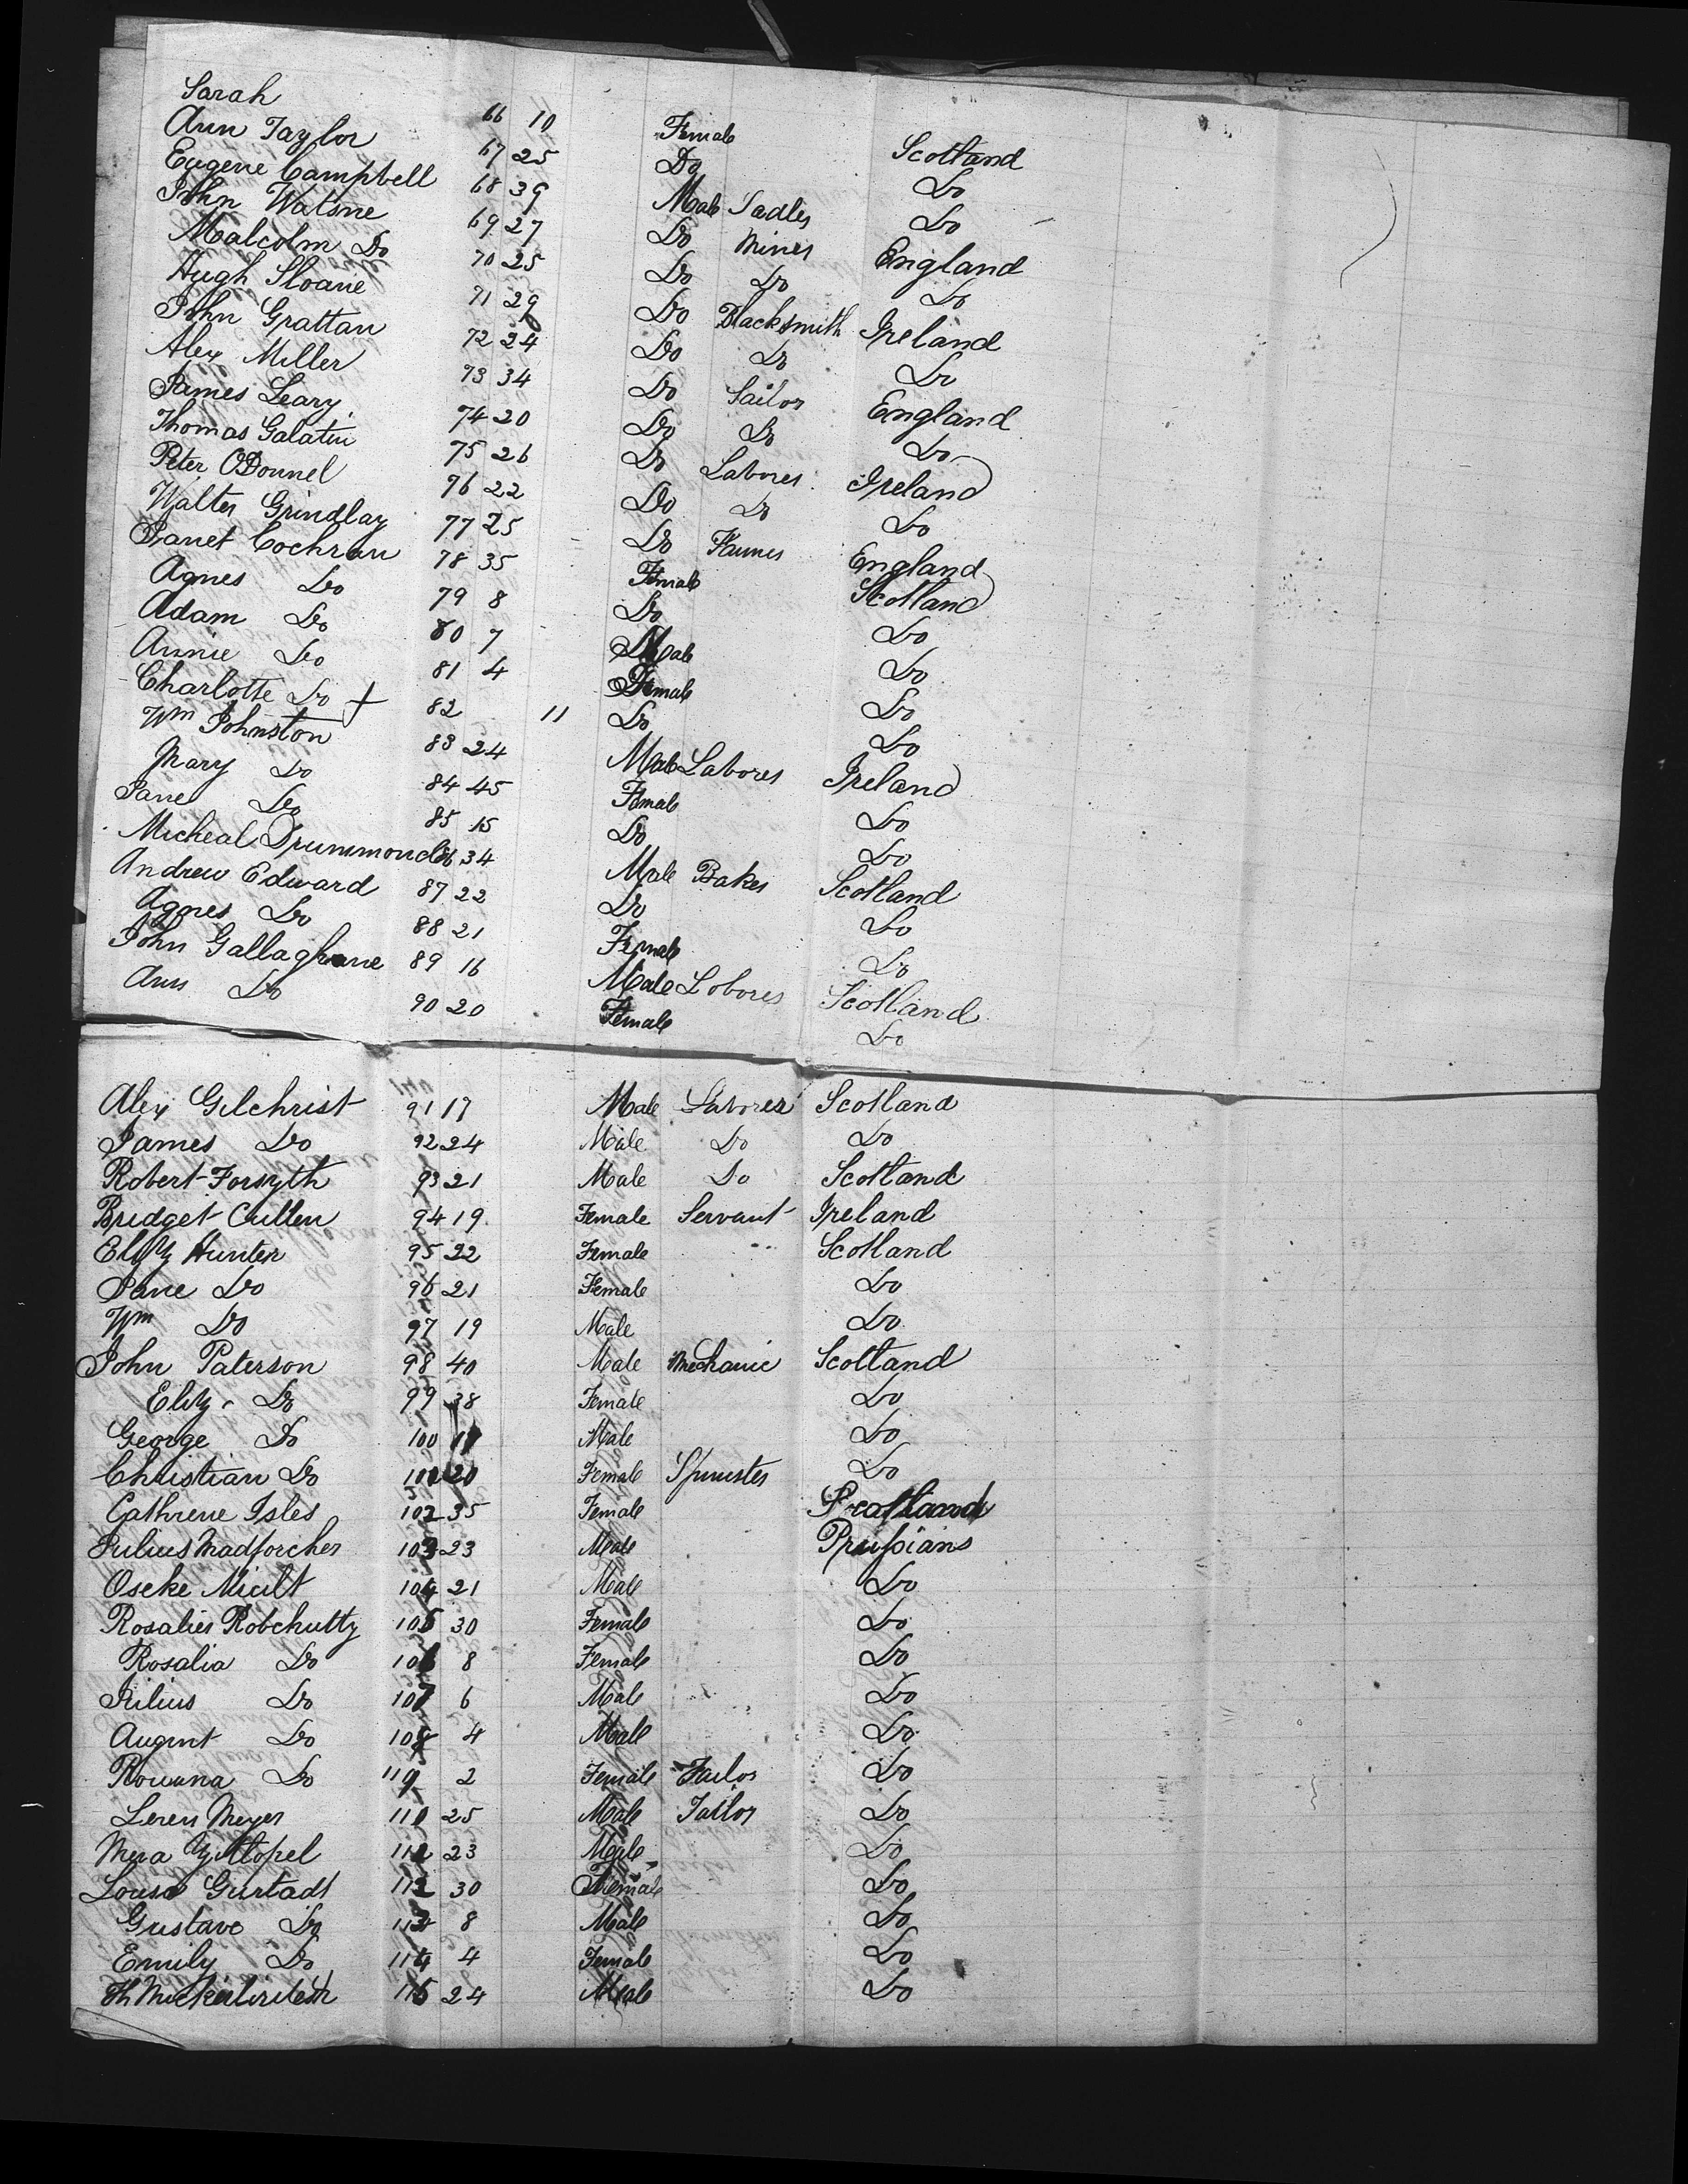 Sarah 66 10 Female Scotland
Ann Taylor 67 25 Do Do
Eugene Campbell 68 39 Male Sadler Do
John Watsne 69 27 Do Miner England
Malcolm Do 70 25 Do Do Do
Hugh Sloane 71 29 Do Blacksmith Ireland
John Grattan 72 24 Do Do Do
Alex Miller 73 34 Do Sailor England
James Leary 74 20 Do Do Do
Thomas Galatin 75 26 Do Laborer Ireland
Peter ODonnel 76 22 Do Do Do
Walter Grindlay 77 25 Do Farmer England
Janet Cochran 78 35 Female Scotland
Agnes Do 79 8 Do Do
Adam Do 80 7 Male Do
Annie Do 81 4 Female Do
Charlotte Do + 82 11 Do Do
Wm Johnston 83 24 Male Laborer Ireland
Mary Do 84 45 Female Do
Jane Do 85 15 Do Do
Micheal Drummond 86 34 Male Baker Scotland
Andrew Edward 87 22 Do Do
Agnes Do 88 21 Female Do
John Gallaghane 89 16 Male Loborer Scotland
Ann Do 90 20 Female Do
Alex Gilchrist 91 17 Male Laborer Scotland
James Do 92 24 Male Do Do
Robert Forsyth 93 21 Male Do Scotland
Bridget Cullen 94 19 Female Servant Ireland
Eliz Hunter 95 22 Female Scotland
Jane Do 96 21 Female Do
Wm Do 97 19 Male Do
John Paterson 98 40 Male Mechanic Scotland
Eliz Do 99 38 Female Do
George Do 100 11 Male Do
Christian Do 101 20 Female Spinster Do
Cathrene Isles 102 35 Female Scotland
Julius Madforcher 103 23 Male Prussians
Oscke 104 21 Male Do
Rosalies Robchutty 105 30 Female Do
Rosalia Do 106 8 Female Do
Julius Do 107 6 Male Do
Augunt Do 108 4 Male Do
Rowana Do 109 2 Female Tailor Do
Leren Meyer 110 25 Male Tailor Do
Mera 111 23 Male Do
Louisa Gurtadt 112 30 Female Do
Gustave Do 113 8 Male Do
Emily Do 114 4 Female Do
Th 115 24 Male Do